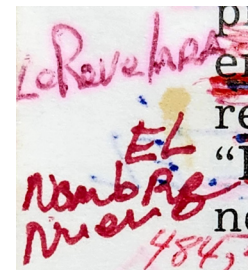 LoRevelras
EL
NombRe
Nuevo
484,
p
er
re
“I
ne